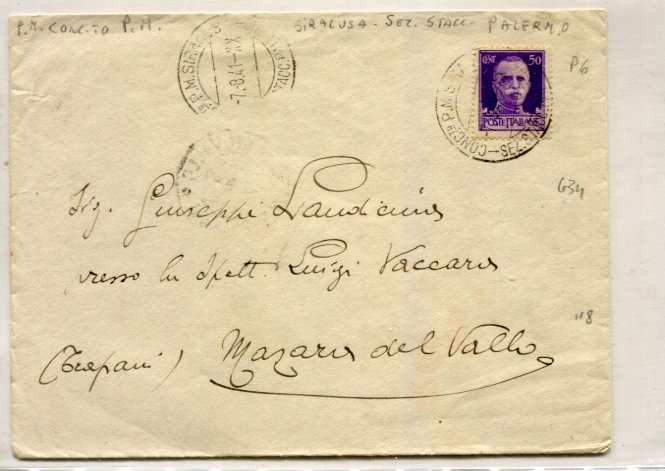 P.M. CONC.TO P.M. SIRACUSA - SEZ. STACC. PALERMO
P.M. SIRA
7.8.41-XX
STACC.
CENT. 50
POSTE ITALIANE
CONC.TO P.M. SEZ. STA
P6
634
Sig. Giuseppe Laudicina
presso la Spett. Luigi Vaccara
(Trapani) Mazara del Vallo